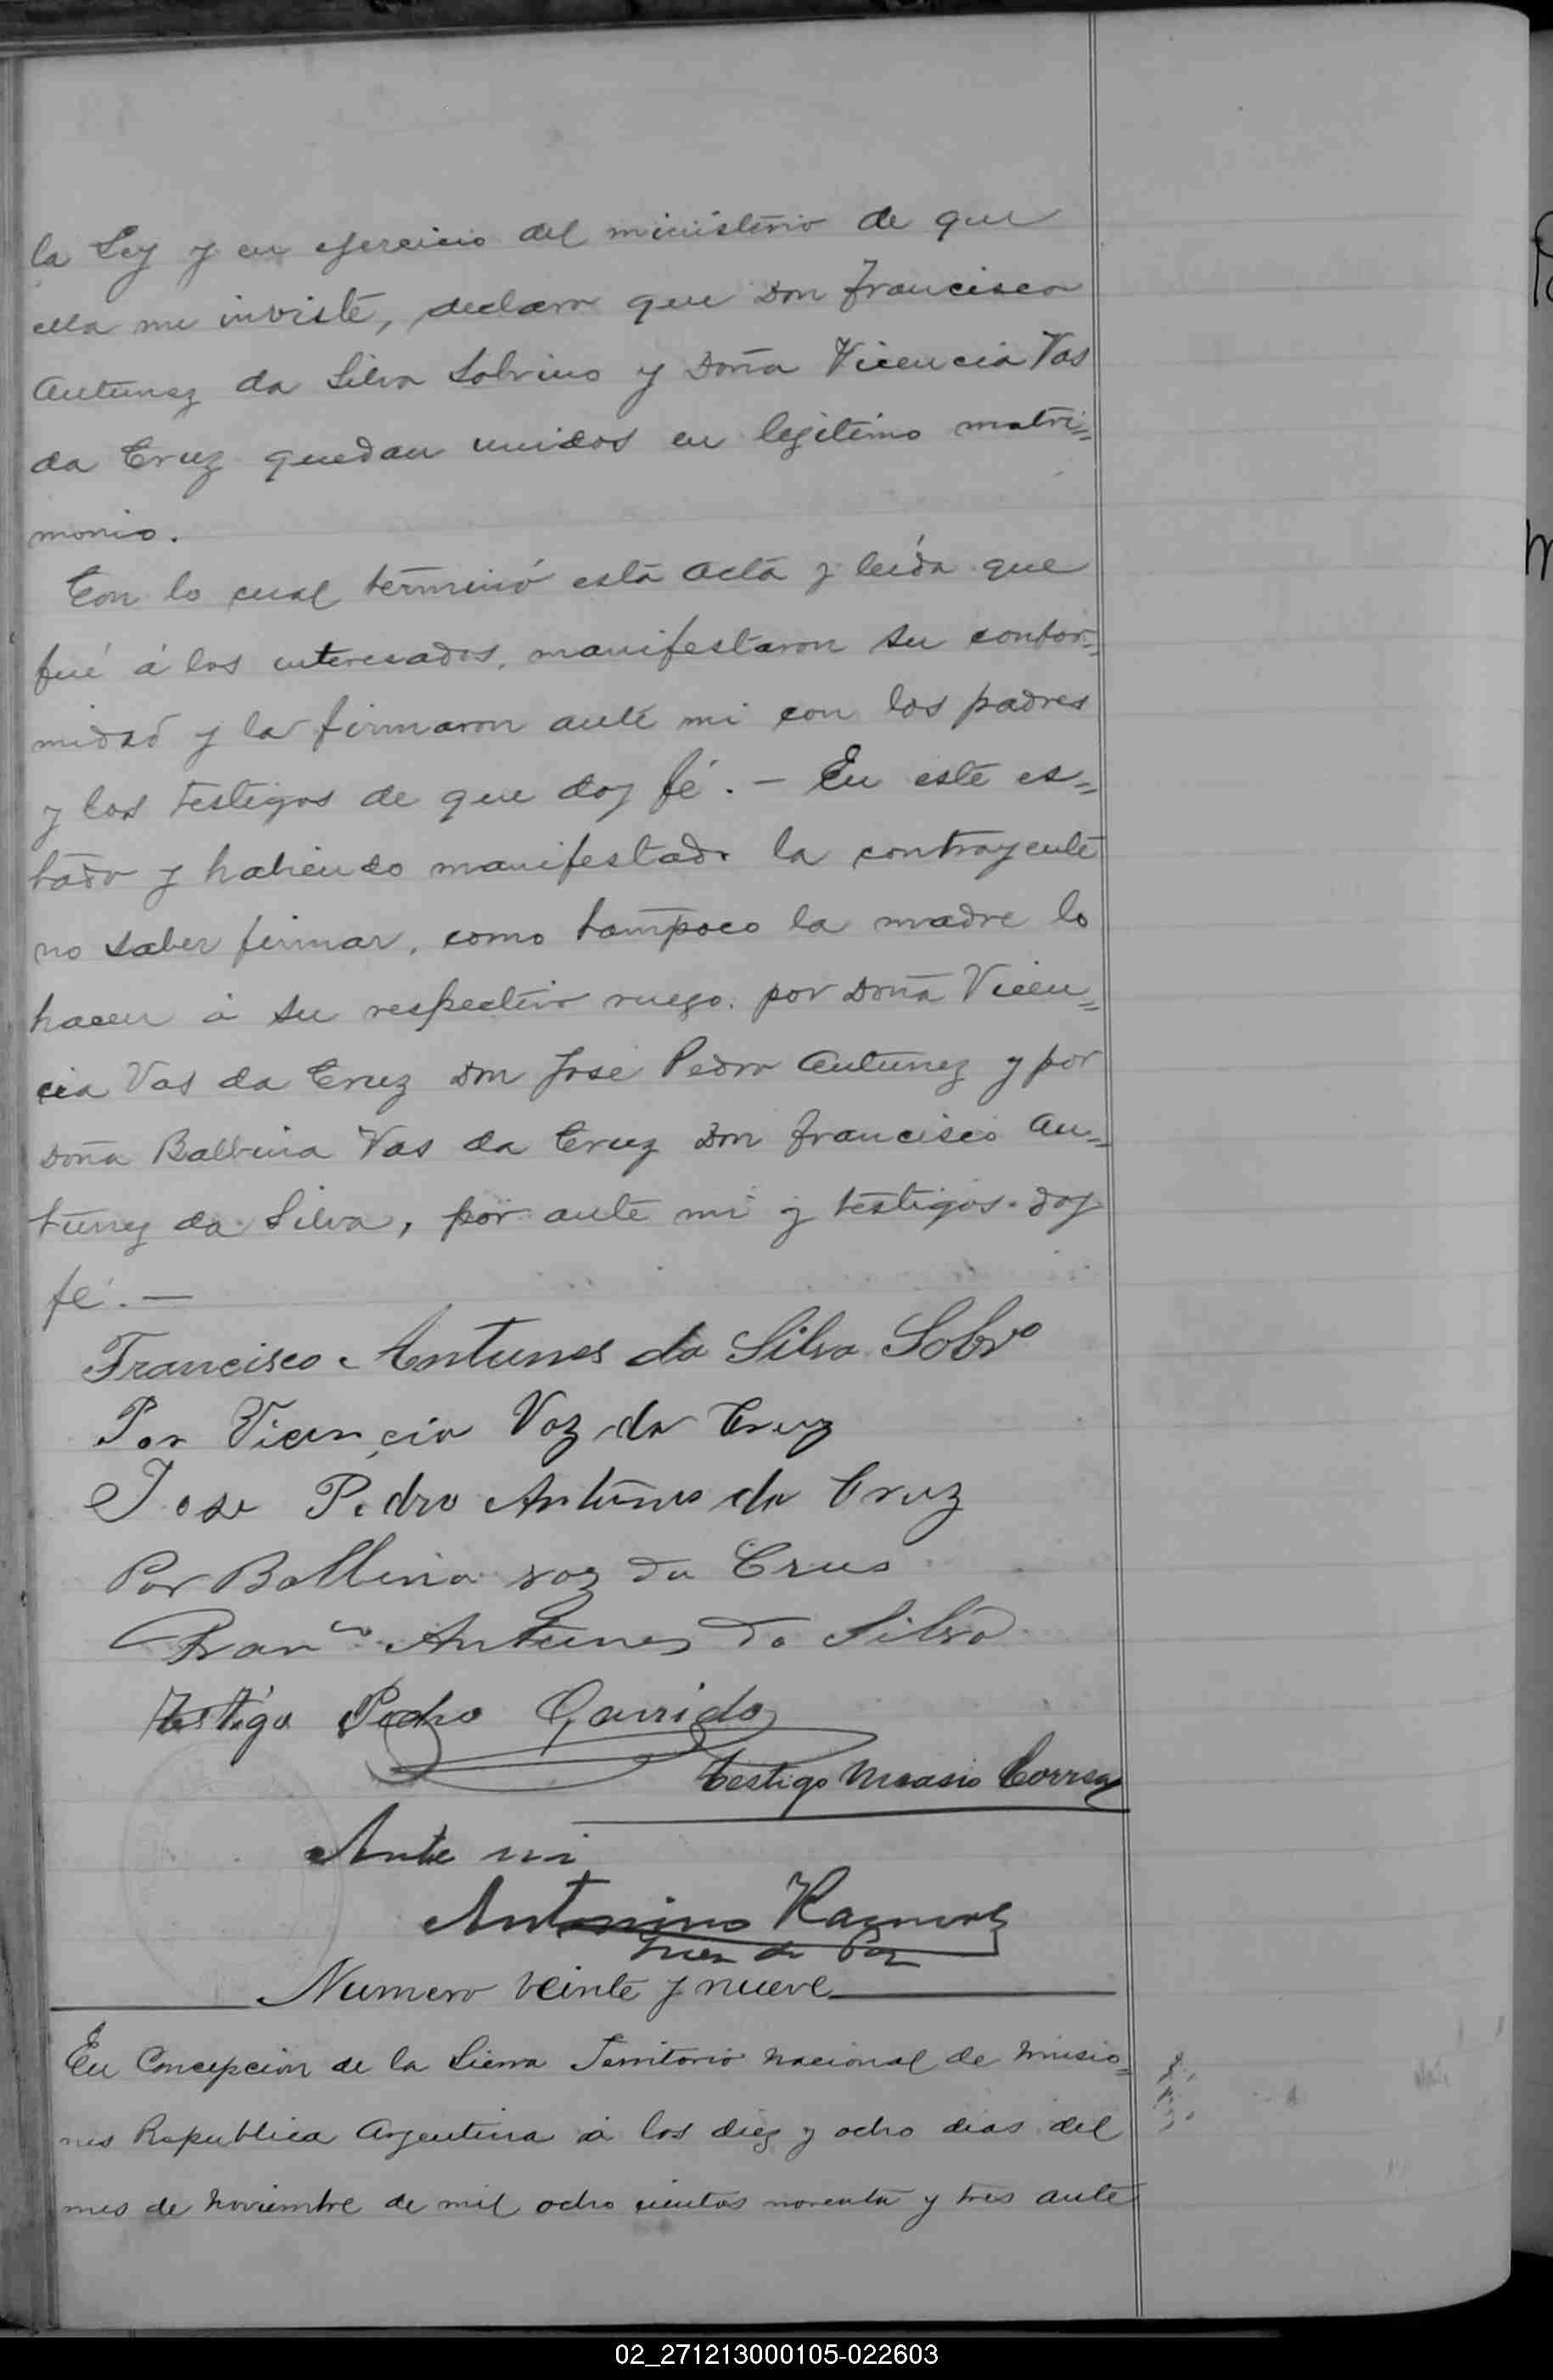 la Ley y en ejercicio del ministerio de que
ella me inviste, declaro que Don Francisco
Antunez da Silva Sobrino y Doña Vicencia Vas
da Cruz quedan unidos en legitimo matri=
monio.
Con lo cual terminó esta acta y leída que
fué á los interesados, manifestaron su confor=
midad y la firmaron ante mi con los padres
y los testigos de que doy fé. — En este es=
tado y habiendo manifestado la contrayente
no saber firmar, como tampoco la madre lo
hacen á su respectivo ruego. por Doña Vicen=
cia Vas da Cruz Don José Pedro Antunez y por
Doña Balbina Vas da Cruz Don Francisco An=
tunez da Silva, por ante mi y testigos. doy
fé. —
Francisco Antunes da Silva Sobrº
Por Vicencia Vaz da Cruz
Jose Pedro Antunes da Cruz
Por Balbina vaz da Crus
Franco Antunes da Silva
Testigo Pedro Garrido
testigo Correa
Ante mi
Antonino Ramirez
Juez de Paz
Numero veinte y nueve
En Concepcion de la Sierra Territorio Nacional de Misio=
nes Republica Argentina á los diez y ocho dias del
mes de Noviembre de mil ocho cientos noventa y tres ante
02_271213000105-022603